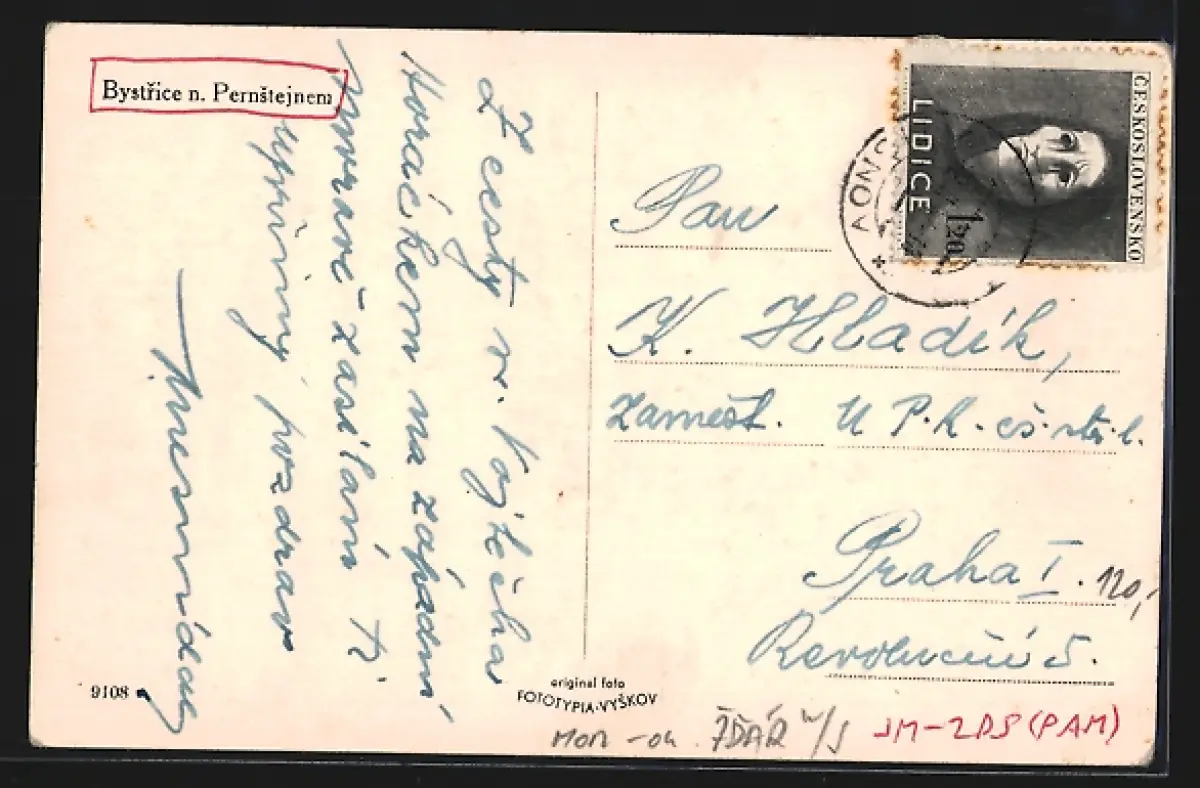 Bystřice n. Pernštejnem
Z cesty
Horáckem na západní
zasílám Ti
upřímný pozdrav
9108
original foto
FOTOTYPIA-VYŠKOV
ČESKOSLOVENSKO
LIDICE
1.20
Pan
K. Hladík,
zaměst. U P.K.
Praha I.
120,-
Revoluční 5.
MOR - OK. ŽĎÁR n/S
JM-ZDS (PAM)